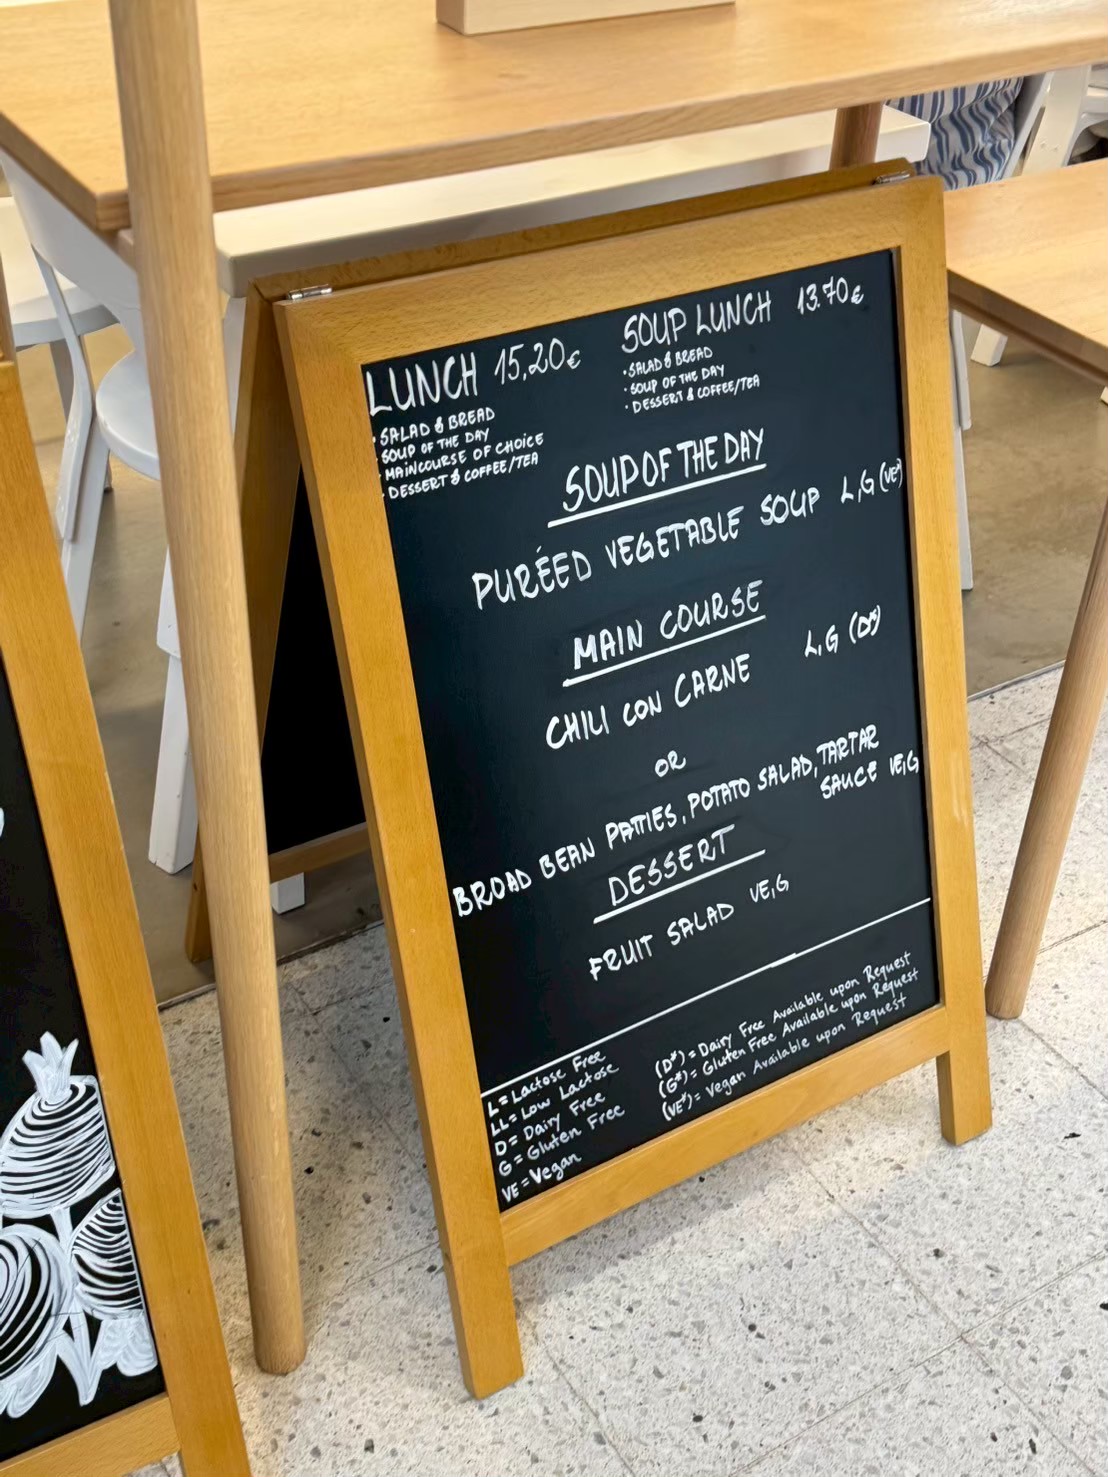 LUNCH 15,20€
• SALAD & BREAD
• SOUP OF THE DAY
• MAINCOURSE OF CHOICE
• DESSERT & COFFEE/TEA
SOUP LUNCH 13.70€
• SALAD & BREAD
• SOUP OF THE DAY
• DESSERT & COFFEE/TEA
SOUP OF THE DAY
PURÉED VEGETABLE SOUP L,G (VE*)
MAIN COURSE
CHILI CON CARNE L,G (D*)
OR
BROAD BEAN PATTIES, POTATO SALAD, TARTAR
SAUCE VE,G
DESSERT
FRUIT SALAD VE,G
L = Lactose Free
LL = Low Lactose
D = Dairy Free
G = Gluten Free
VE = Vegan
(D*) = Dairy Free Available upon Request
(G*) = Gluten Free Available upon Request
(VE*) = Vegan Available upon Request